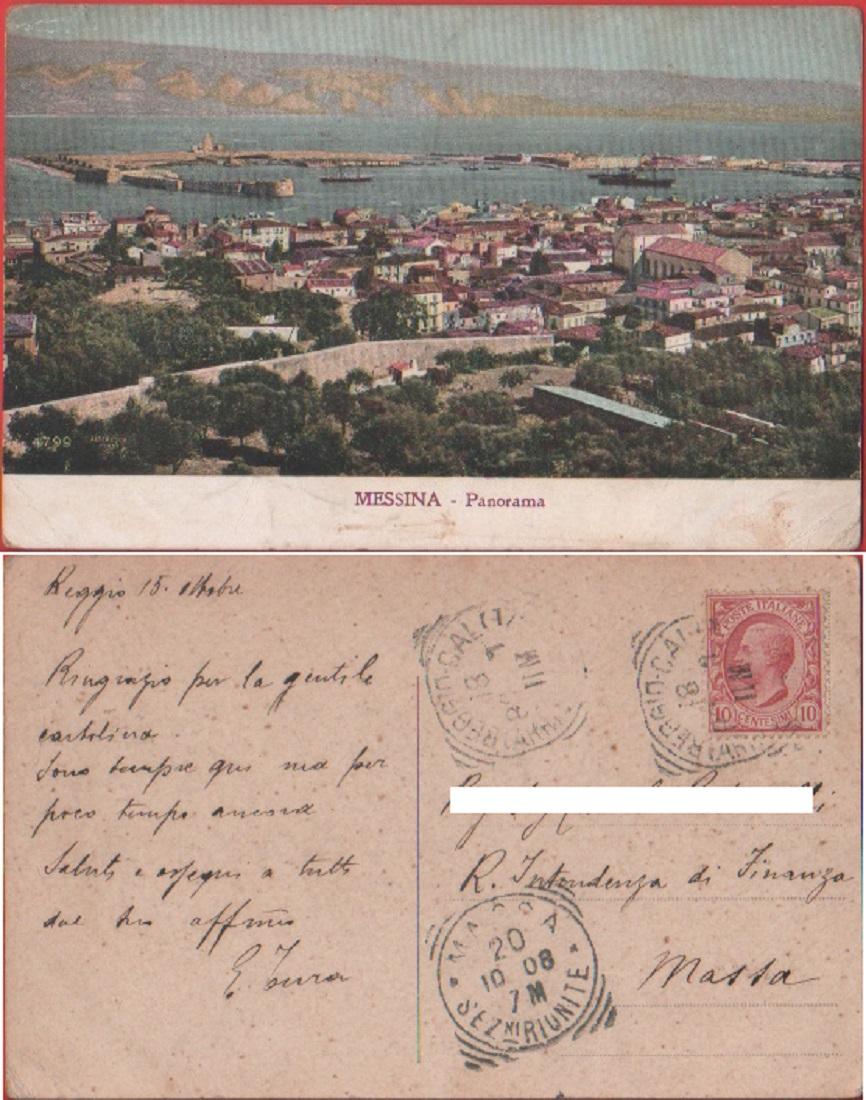 4799
MESSINA - Panorama
Reggio 15. ottobre
Ringrazio per la gentile
cartolina.
Sono sempre qui ma per
poco tempo ancora
Saluti e ossequi a tutti
dal tuo affmo
E.
POSTE ITALIANE
10 CENTESIMI 10
REGGIO-CAL
REGGIO-CAL
R. Intendenza di Finanza
Massa
MASSA
20
10 08
7M
SEZNI RIUNITE